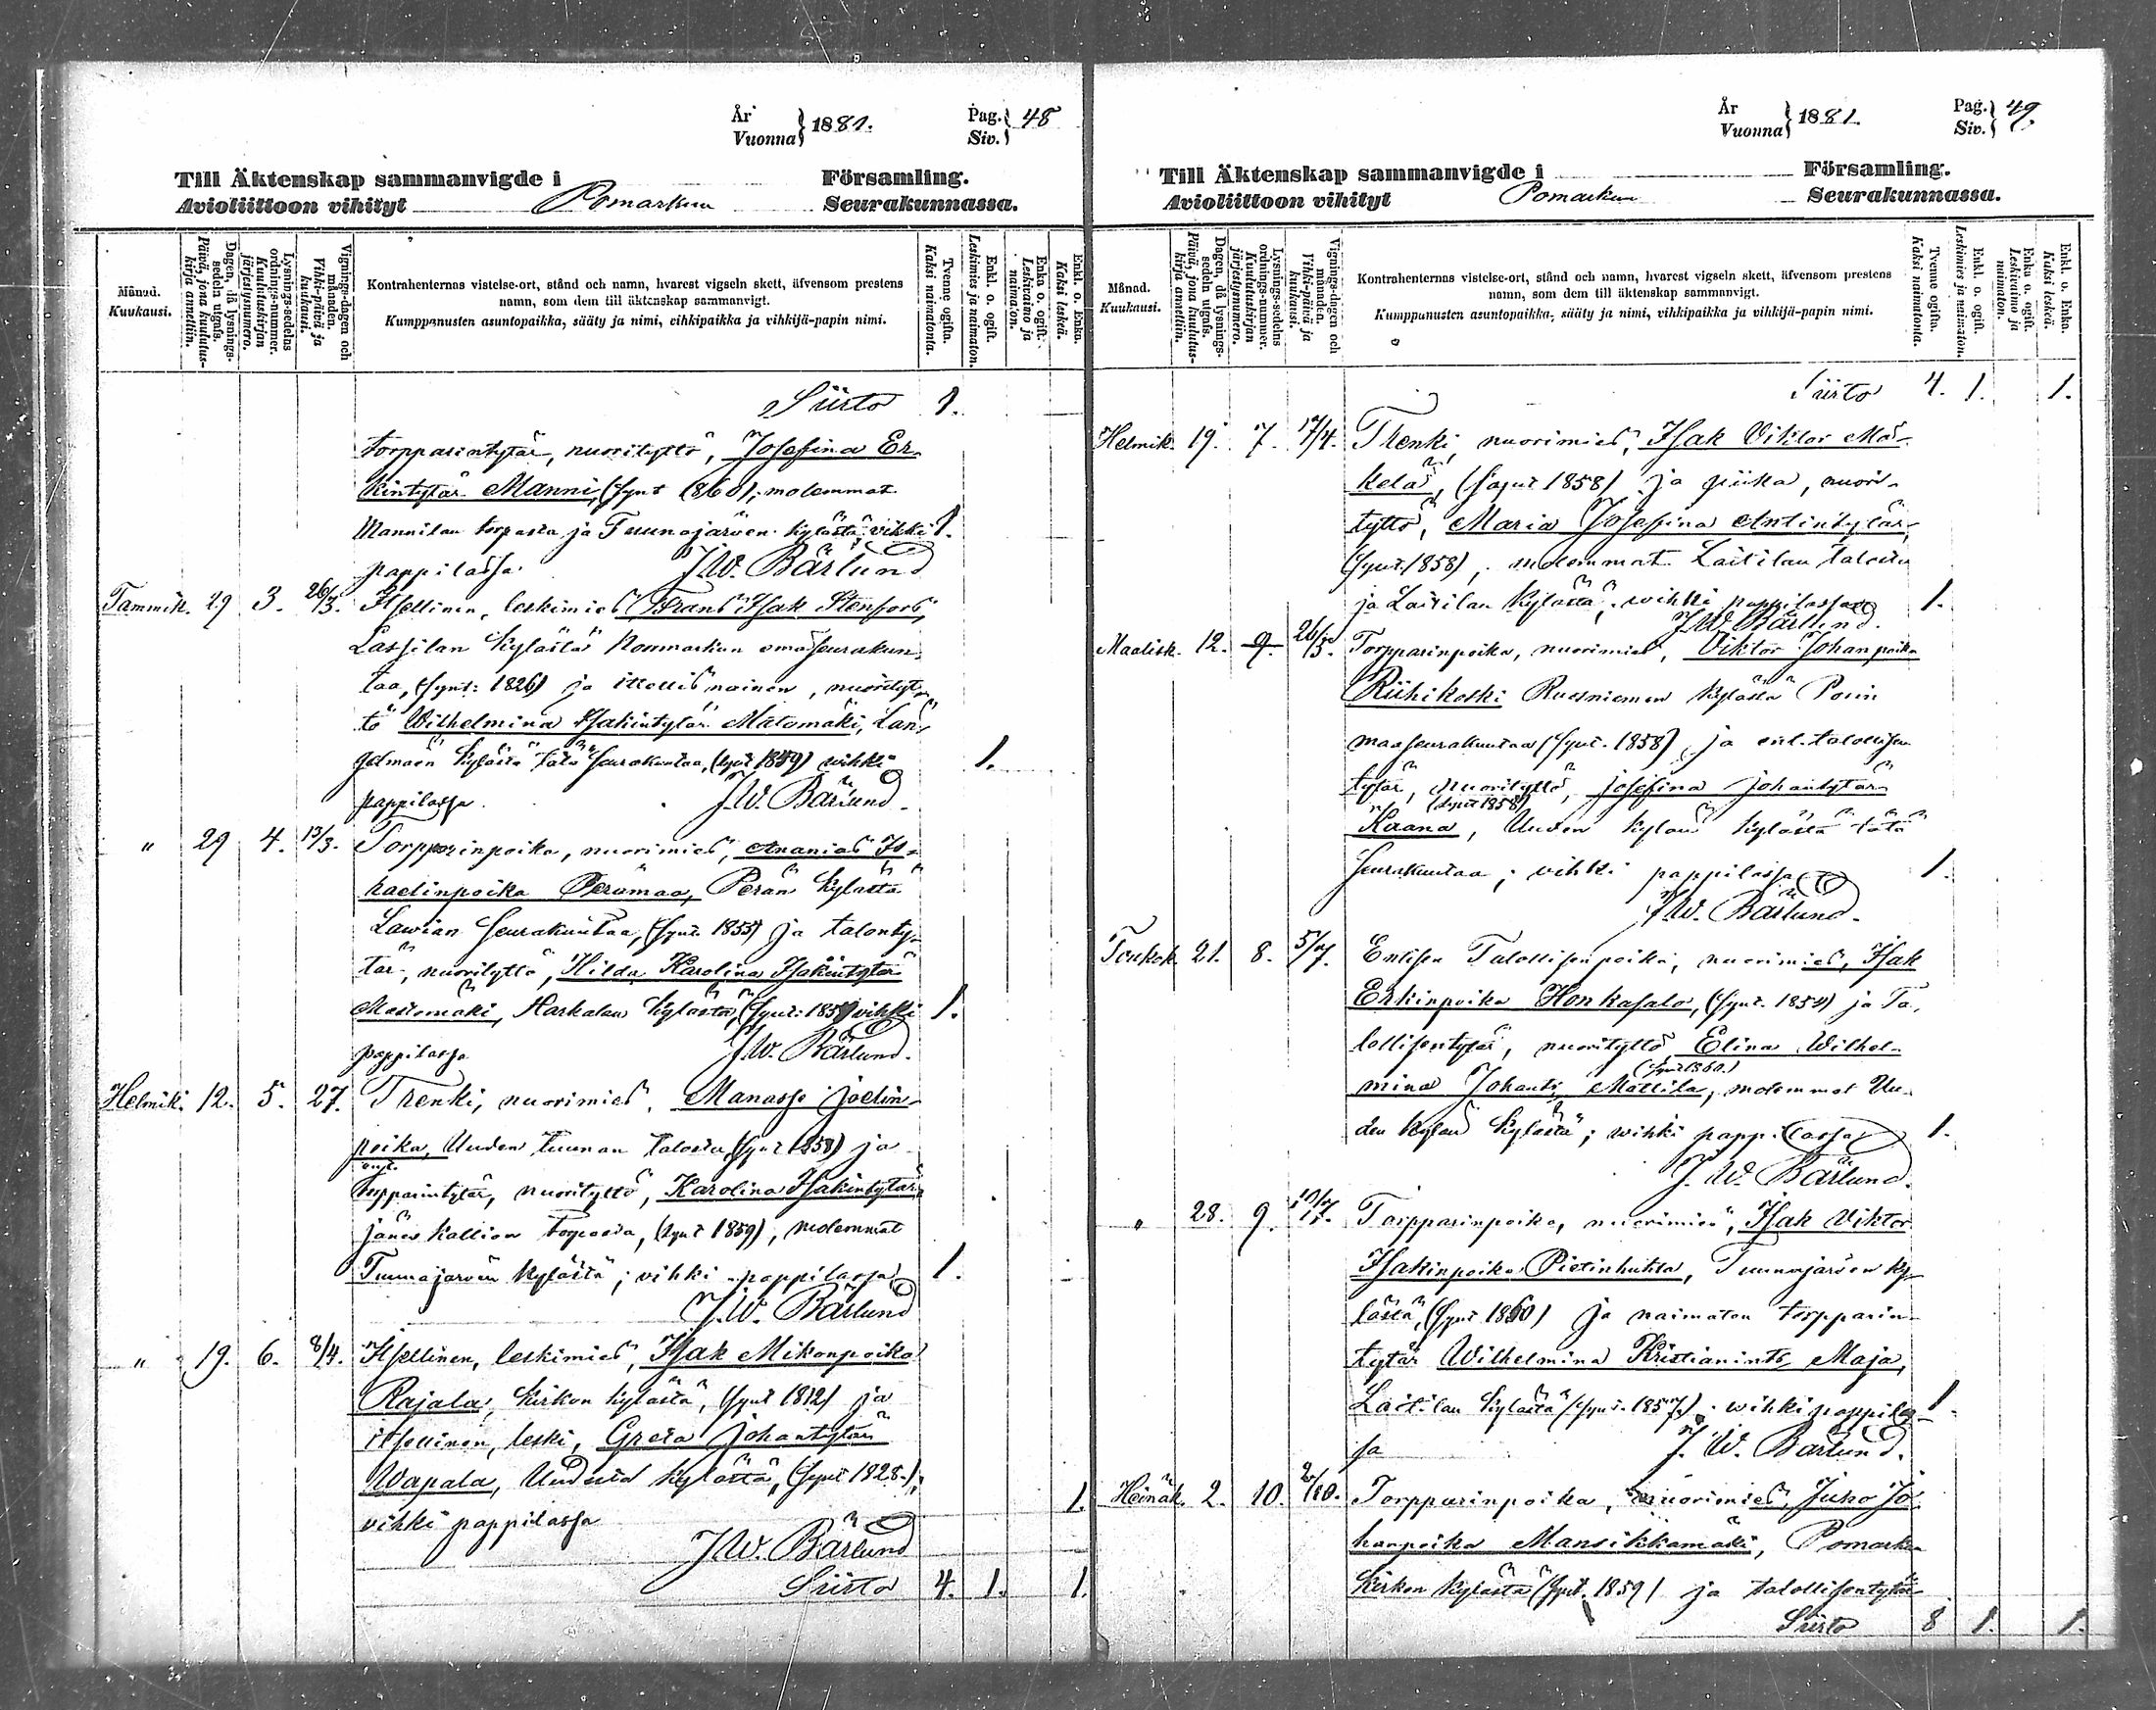 År Vuonna } 1881. Pag. Siv. } 48
Till Äktenskap sammanvigde i Församling.
Avioliittoon vihityt Pomarkun Seurakunnassa.
Månad. Kuukausi.
Dagen, då lysnings-sedeln utgafs. Päivä, jona kuulutus-kirja annettiin.
Lysnings-sedelns ordnings-nummer. Kuulutuskirjan järjestysnumero.
Vignings-dagen och månaden. Vihki-päivä ja kuukausi.
Kontrahenternas vistelse-ort, stånd och namn, hvarest vigseln skett, äfvensom prestens
namn, som dem till äktenskap sammanvigt.
Kumppanusten asuntopaikka, sääty ja nimi, vihkipaikka ja vihkijä-papin nimi.
Tvenne ogifta. Kaksi naimatonta.
Enkl. o. ogift. Leskimies ja naimaton.
Enka o. ogift. Leskivaimo ja naimaton.
Enkl. o. Enka. Kaksi leskeä.
Siirto 1.
torpparintytär, nuorityttö, Josefina Er-
kintytär Manni, (synt 1860), molemmat
Mannilan torpasta ja Tuunajärven kylästä vihki 1.
pappilassa. J.W. Bärlund
Tammik. 29 3. 26/3. Itsellinen, leskimies Frans Isak Stenfors,
Lassilan kylästä Normarkun emäseurakun-
taa, (synt: 1826) ja itsellis nainen, nuorityt-
tö Wilhelmina Isakintytär Mätömäki, Lan-
gelmaen kylästä tätä seurakuntaa, (synt 1859) vihki 1.
pappilassa. J.W. Bärlund.
" 29 4. 13/3. Torpparinpoika, nuorimies, Ananias Is-
raelinpoika Perämaa, Perän kylästä
Lawian seurakuntaa, (synt. 1855) ja talonty-
tär, nuorityttö, Hilda Karolina Isakintytär
Mätömäki, Harkalan kylästä, (synt: 1859) vihki 1.
pappilassa J.W. Bärlund.
Helmik. 12. 5. 27. Trenki, nuorimies, Manasse Joelin-
poika, Uuden tuunan talosta, (synt 1858) ja
torpparintytär, nuorityttö, Karolina Isakintytär,
jänes kallion torpasta, (synt 1859), molemmat
Tuunajärven kylästä; vihki pappilassa 1.
J.W. Bärlund
" 19. 6. 8/4. Itsellinen, leskimies, Isak Mikonpoika
Rajala, kirkon kylästä, (synt 1812) ja
itsellinen, leski, Greta Johantytär
Wapala, Uudesta kylästä, (synt 1828.); 1.
vihki pappilassa
J.W. Bärlund
Siirto 4. 1. 1.
År Vuonna } 1881. Pag. Siv. } 49.
Till Äktenskap sammanvigde i Församling.
Avioliittoon vihityt Pomarkun Seurakunnassa.
Månad. Kuukausi.
Dagen, då lysnings-sedeln utgafs. Päivä, jona kuulutus-kirja annettiin.
Lysnings-sedelns ordnings-nummer. Kuulutuskirjan järjestysnumero.
Vignings-dagen och månaden. Vihki-päivä ja kuukausi.
Kontrahenternas vistelse-ort, stånd och namn, hvarest vigseln skett, äfvensom prestens
namn, som dem till äktenskap sammanvigt.
Kumppanusten asuntopaikka, sääty ja nimi, vihkipaikka ja vihkijä-papin nimi.
Tvenne ogifta. Kaksi naimatonta.
Enkl. o. ogift. Leskimies ja naimaton.
Enka o. ogift. Leskivaimo ja naimaton.
Enkl. o. Enka. Kaksi leskeä.
Siirto 4. 1. 1.
Helmik. 19. 7. 17/4. Trenki, nuorimies, Isak Viktor Mä-
kelä, (synt 1858) ja piika, nuori-
tyttö, Maria Josefina Antintytär,
(synt. 1858), molemmat Laitilan talosta
ja Laitilan kylästä, wihki pappilassa 1.
J.W. Bärlund.
Maalisk. 12. 9. 26/5. Torpparinpoika, nuorimies, Viktor Johanpoika
Riihikoski Ruosniemen kylästä Porin
maaseurakuntaa (synt. 1858) ja ent. talollisen
tytär, nuorityttö, Josefina Johantytär
(synt 1858)
Kaana, Uuden kylän kylästä tätä
seurakuntaa; vihki pappilassa 1.
J.W. Bärlund.
Toukok. 21. 8. 5/7. Entisen Talollisenpoika, nuorimies, Isak
Erkinpoika Honkasalo, (synt. 1854) ja Ta-
lollisentytär, nuorityttö Elina Wilhel-
(synt 1860.)
mina Johant. Mattila, molemmat Uu-
den kylän kylästä; wihki pappilassa 1.
J.W. Bärlund.
" 28. 9. Torpparinpoika, nuorimies, Isak Viktor
Isakinpoika Pietinhuhta, Tuunajärven ky-
lästä, (synt 1860) ja naimaton torpparin-
tytär Wilhelmina Kristianint. Maja,
Laitilan kylästä (synt. 1857); wihki pappilas- 1.
sa J.W. Bärlund.
Heinäk. 2. 10. 2/10. Torpparinpoika, nuorimies, Juho Jo-
hanpoika Mansikkamäki, Pomarkun
Kirkon kylästä (synt. 1859) ja talollisentytär
Siirto 8 1. 1.